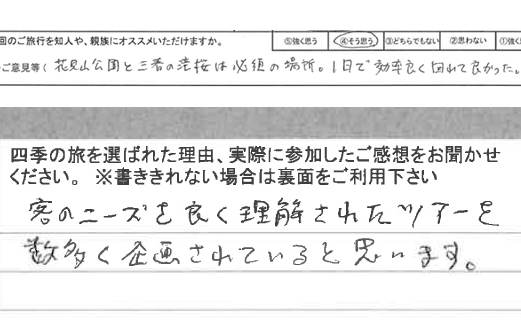 回のご旅行を知人や、親族にオススメいただけますか。 ⑤強く思う ④そう思う ③どちらでもない ②思わない ①強く
ご意見等( 花見山公園と三春の滝桜は必須の場所。1日で効率良く回れて良かった。
四季の旅を選ばれた理由、実際に参加したご感想をお聞かせ
ください。 ※書ききれない場合は裏面をご利用下さい
客のニーズを良く理解されたツアーを
数多く企画されていると思います。